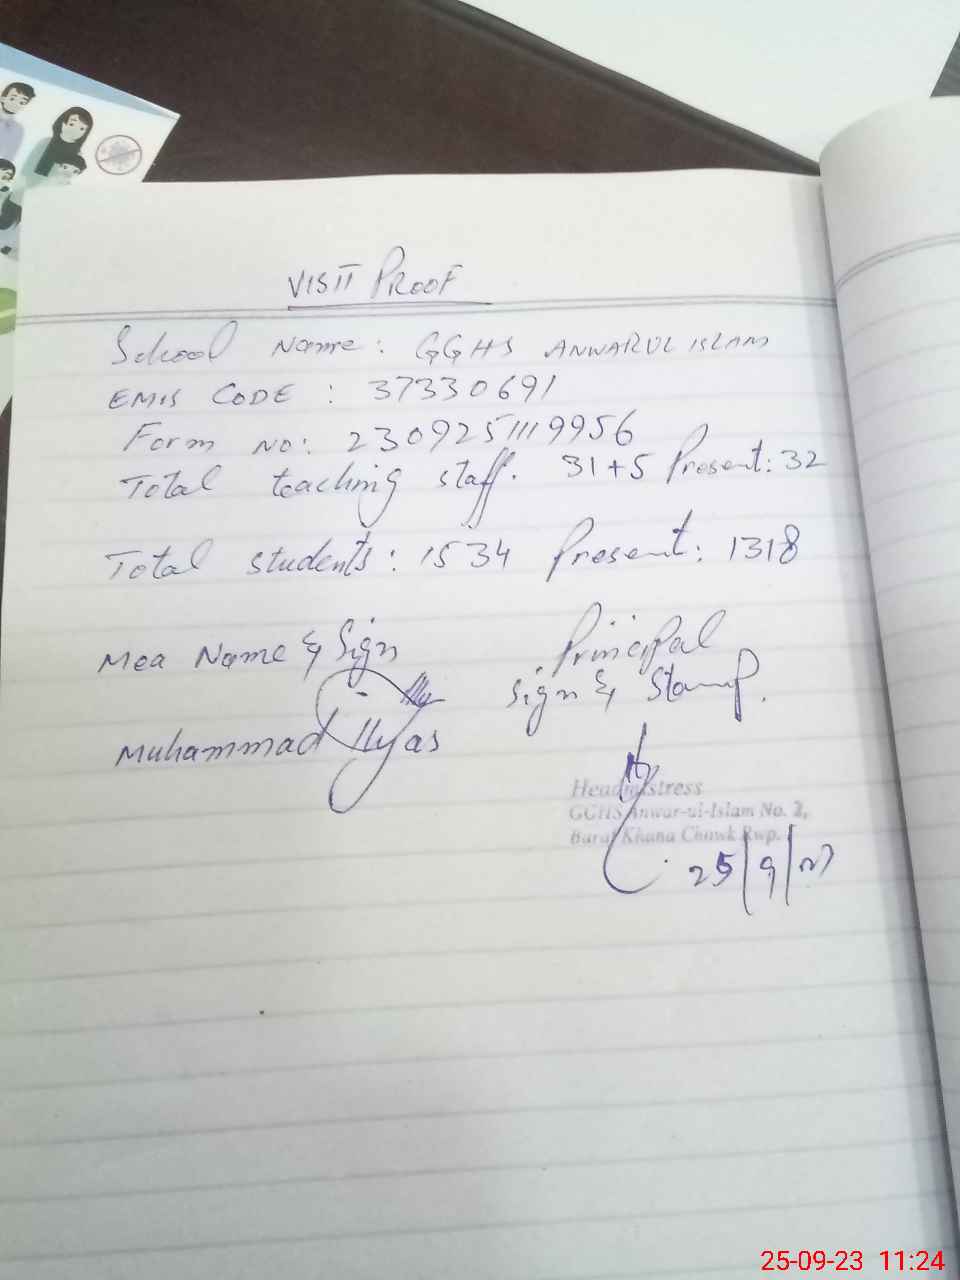 VISIT PROOF
School Name: GGHS ANWARUL ISLAM
EMIS CODE : 37330691
Form No: 2309251119956
Total teaching staff. 31+5 Present: 32
Total students: 1534 Present: 1318
Mea Name & Sign
Principal
Sign & Stamp.
Muhammad Ilyas
Headmistress
GGHS Anwar-ul-Islam No. 2,
Baraf Khana Chowk Rwp.
25/9/23
25-09-23 11:24